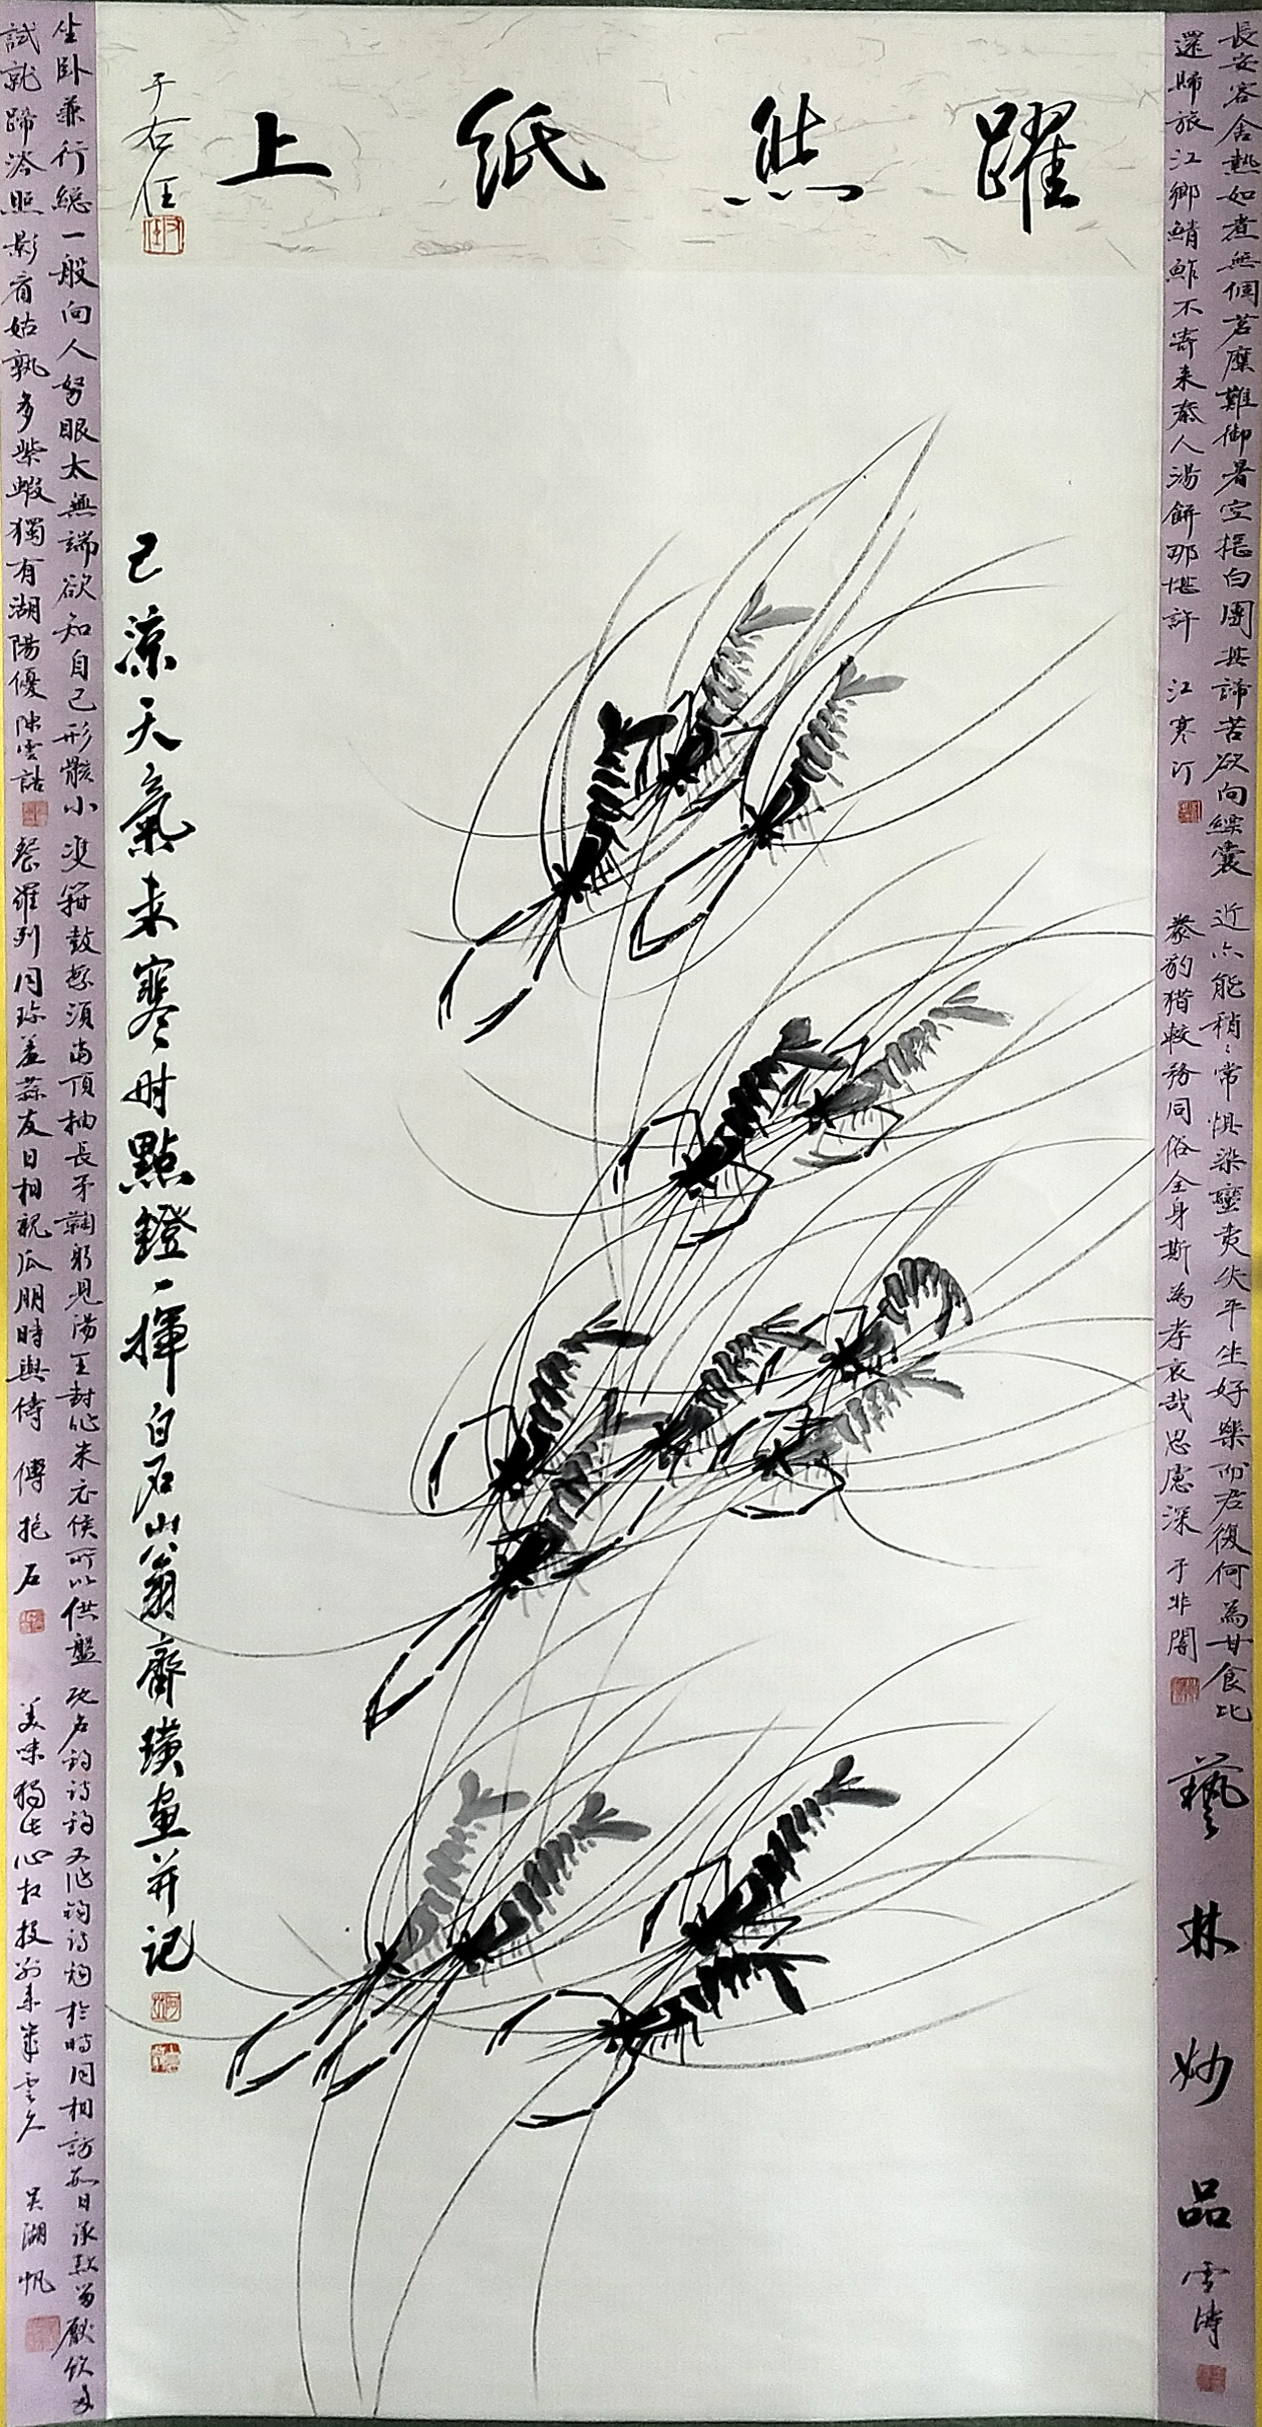 躍然紙上
于右任
長安客舍熱如煮無個茗糜難御暑空搖白團其諦苦欲向縹囊
還歸旅江鄉鯖鮓不寄來秦人湯餅那堪許 江寒汀
近亦能稍稍常惧染蠻夷失平生好樂而君復何為甘食比
豢豹獵較務同俗全身斯為孝哀哉思慮深 于非闇
藝林妙品 雪濤
已涼天氣未寒時點鐙一揮白石山翁齊璜畫并記
坐卧兼行總一般向人努眼太無端欲知自己形骸小
試就蹄涔照影看姑孰多紫蝦獨有湖陽優 陳雲誥
雙箝鼓繁須當頂抽長矛鞠躬見湯王封作朱衣侯所以供盤
餐羅列同珍羞蒜友日相親瓜朋時與儔 傅抱石
既名詢詩詢又作詢詩詢於時同相訪
美味獨 吳湖帆